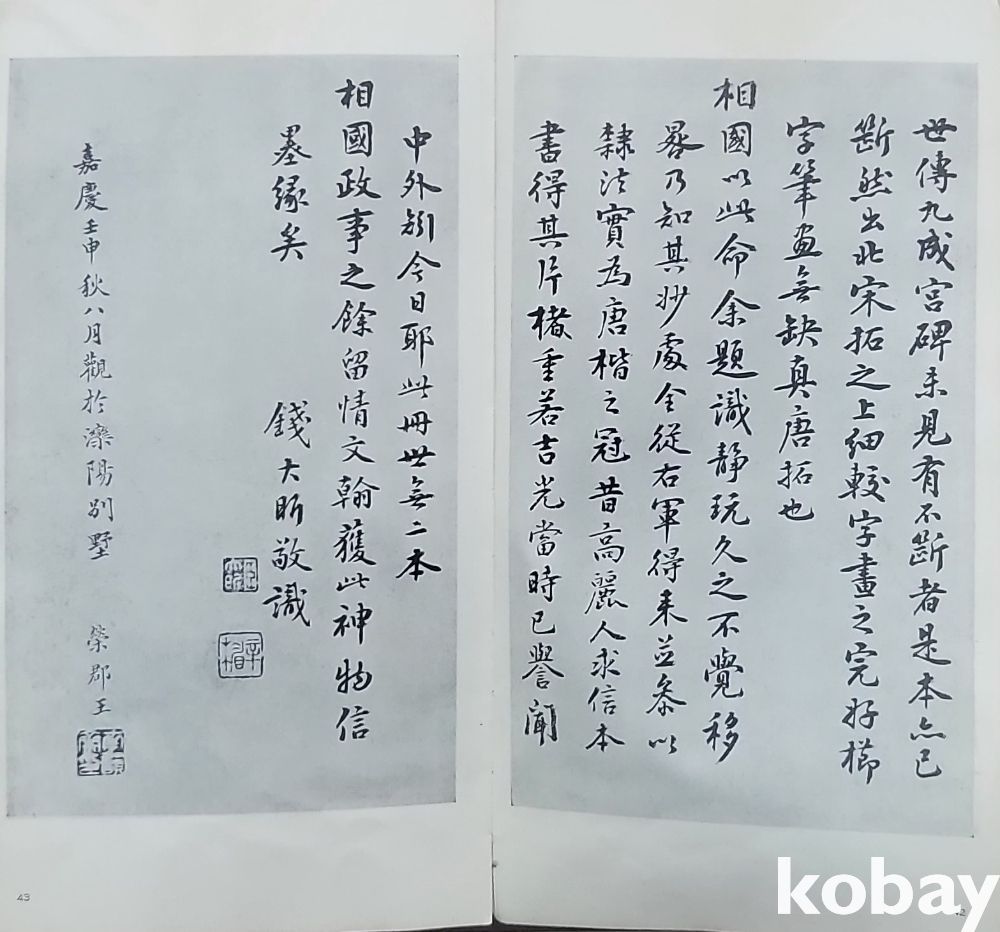 世傳九成宮碑未見有不斷者是本亦已
斷然出北宋拓之上細較字畫之完好櫛
字筆畫無缺真唐拓也
相國以此命余題識靜玩久之不覺移
晷乃知其妙處全從右軍得來並叅以
隸法實為唐楷之冠昔高麗人求信本
書得其片楮重若吉光當時已譽聞
中外矧今日耶此冊世無二本
相國政事之餘留情文翰獲此神物信
墨緣矣 錢大昕敬識
嘉慶壬申秋八月觀於灤陽別墅 榮郡王
43
42
kobay